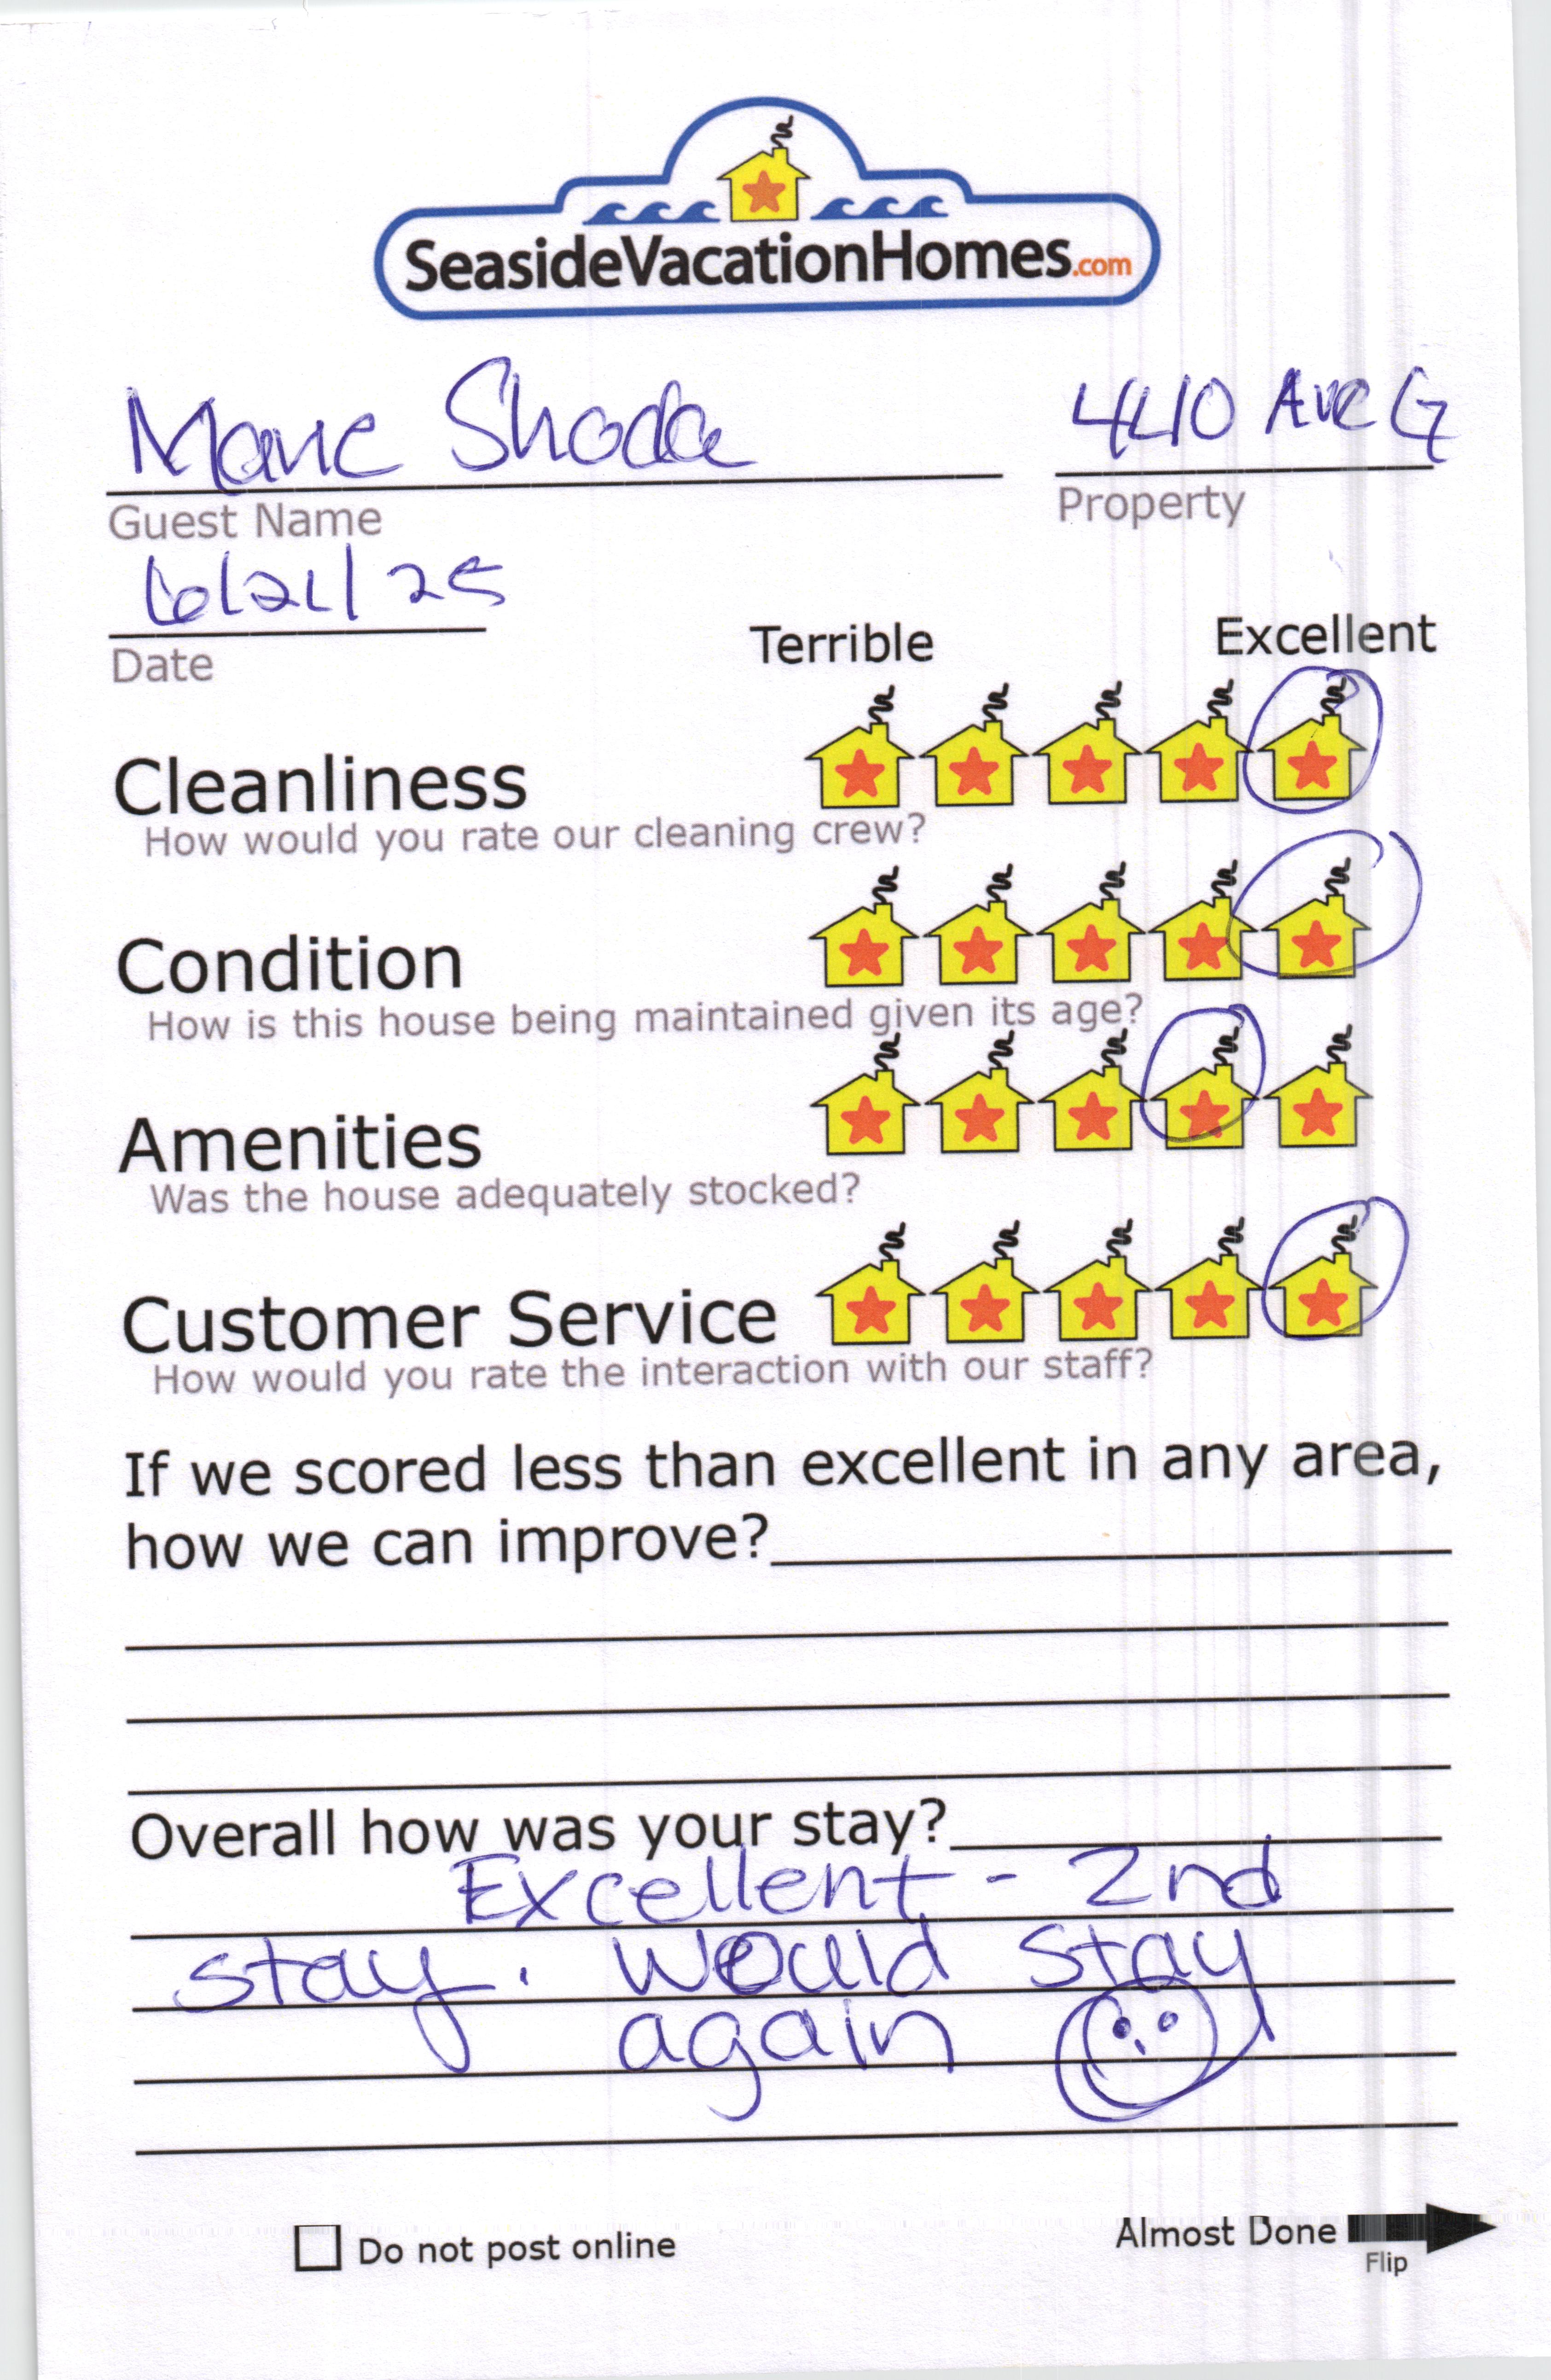 SeasideVacationHomes.com
Marie Shoda 440 Ave G
Guest Name Property
6/21/25
Date
Terrible Excellent
Cleanliness
How would you rate our cleaning crew?
Condition
How is this house being maintained given its age?
Amenities
Was the house adequately stocked?
Customer Service
How would you rate the interaction with our staff?
If we scored less than excellent in any area,
how we can improve?
Overall how was your stay?
Excellent - 2nd
stay. Would stay
again
Do not post online
Almost Done
Flip